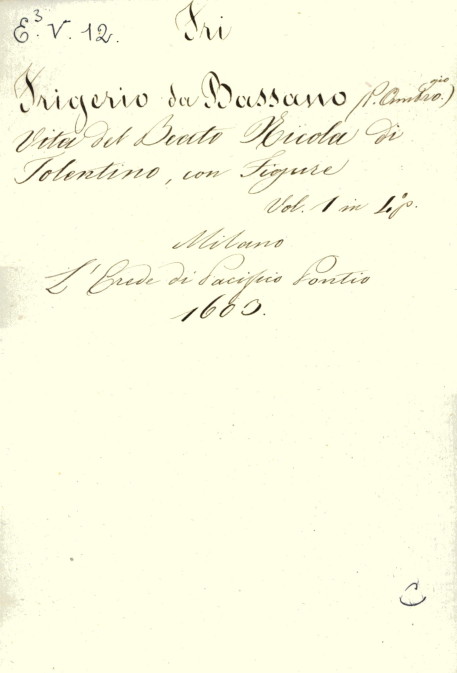 E.³ V. 12. Fri
Frigerio da Bassano (P. Ambro.gio)
Vita del Beato Nicola di
Tolentino, con Figure
Vol. 1 in 4.º p.
Milano
L'Erede di Pacifico Pontio
1603.
C